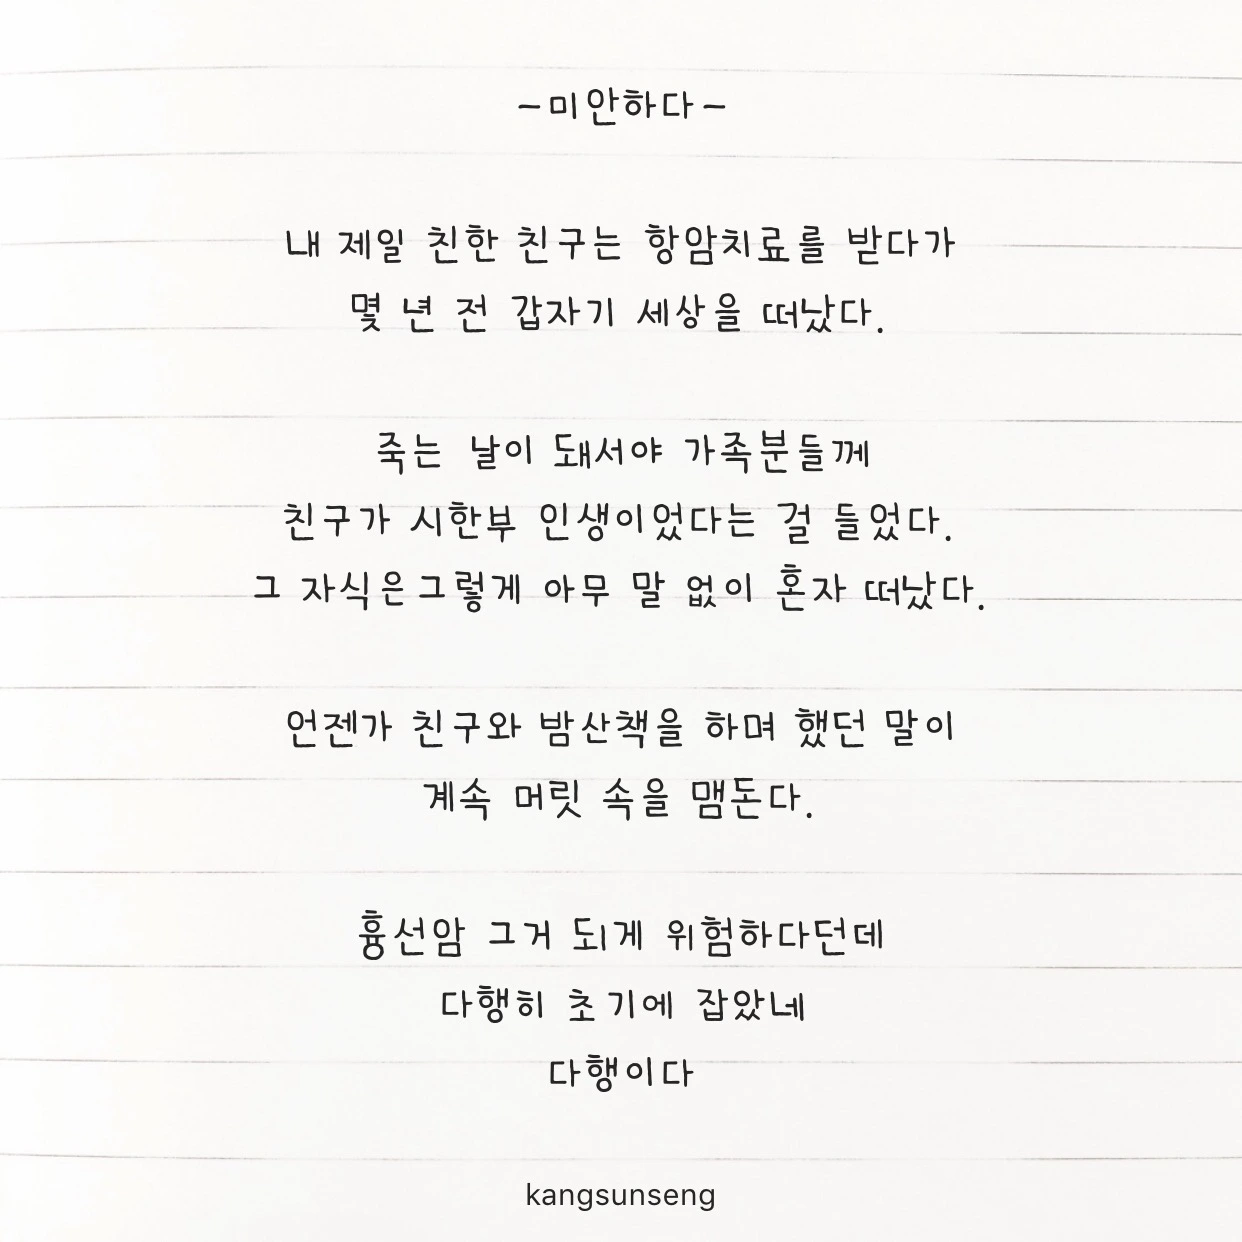 -미안하다-
내 제일 친한 친구는 항암치료를 받다가
몇 년 전 갑자기 세상을 떠났다.
죽는 날이 돼서야 가족분들께
친구가 시한부 인생이었다는 걸 들었다.
그 자식은 그렇게 아무 말 없이 혼자 떠났다.
언젠가 친구와 밤산책을 하며 했던 말이
계속 머릿 속을 맴돈다.
흉선암 그거 되게 위험하다던데
다행히 초기에 잡았네
다행이다
kangsunseng